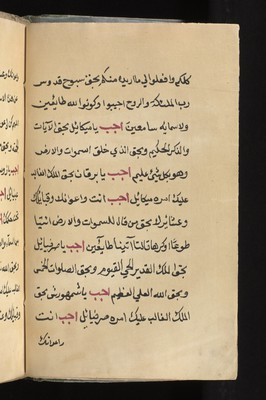 كلكم وافعلوا لي ما اريده منكم بحق سبوح قدوس
رب الملائكة والروح اجيبوا وكونوا لله طائعين
ولاسمايه سامعين اجب يا ميكائيل بحق الآيات
والذكر الحكيم وبحق الذي خلق السموات والارض
وهو بكل شئ عليم اجب يا برقان بحق الملك الغالب
عليك امره ميكائيل اجب انت واعوانك وقبايلك
وعشائرك بحق من قال للسموات والارض ائتيا
طوعا او كرها قالتا آتينا طايعين اجب يا صرفيائيل
بحق الملك القدير الحي القيوم وبحق الصلوات الخمس
وبحق الله العلي العظيم اجب يا شمهورش بحق
الملك الغالب عليك امره صرفيائيل اجب انت
واعوانك